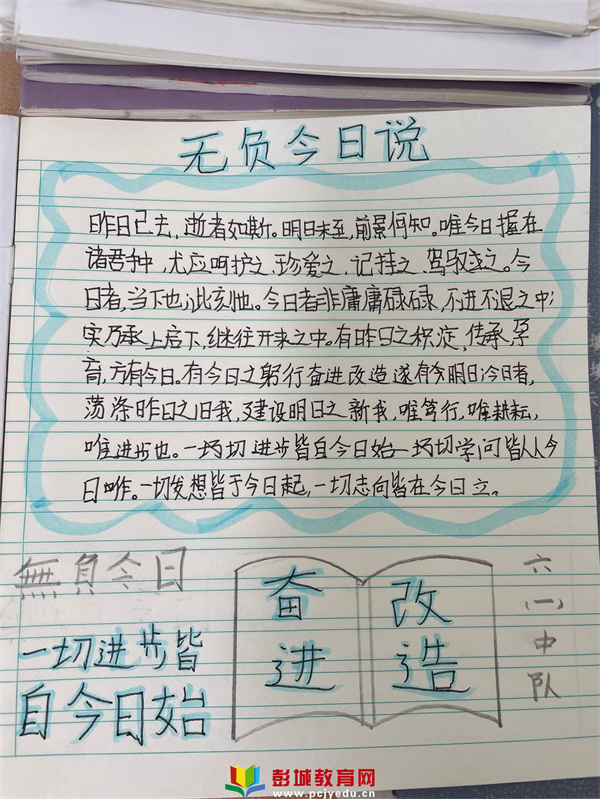 无负今日说
昨日已去,逝者如斯。明日未至,前景何知。唯今日握在
诸君手中,尤应呵护之,珍爱之,记挂之,驾驭之。今
日者,当下也,此刻也。今日者非庸庸碌碌,不进不退之中;
实乃承上启下,继往开来之中。有昨日之积淀,传承,孕
育,方有今日。有今日之躬行奋进改造遂有明日今日者,
荡涤昨日之旧我,建设明日之新我,唯笃行,唯耕耘,
唯进步也。一切进步皆自今日始一切学问皆从今
日作。一切发想皆于今日起,一切志向皆在今日立。
無負今日
一切进步皆
自今日始
奋进
改造
六(一)中队
彭城教育网
www.pcjyedu.cn